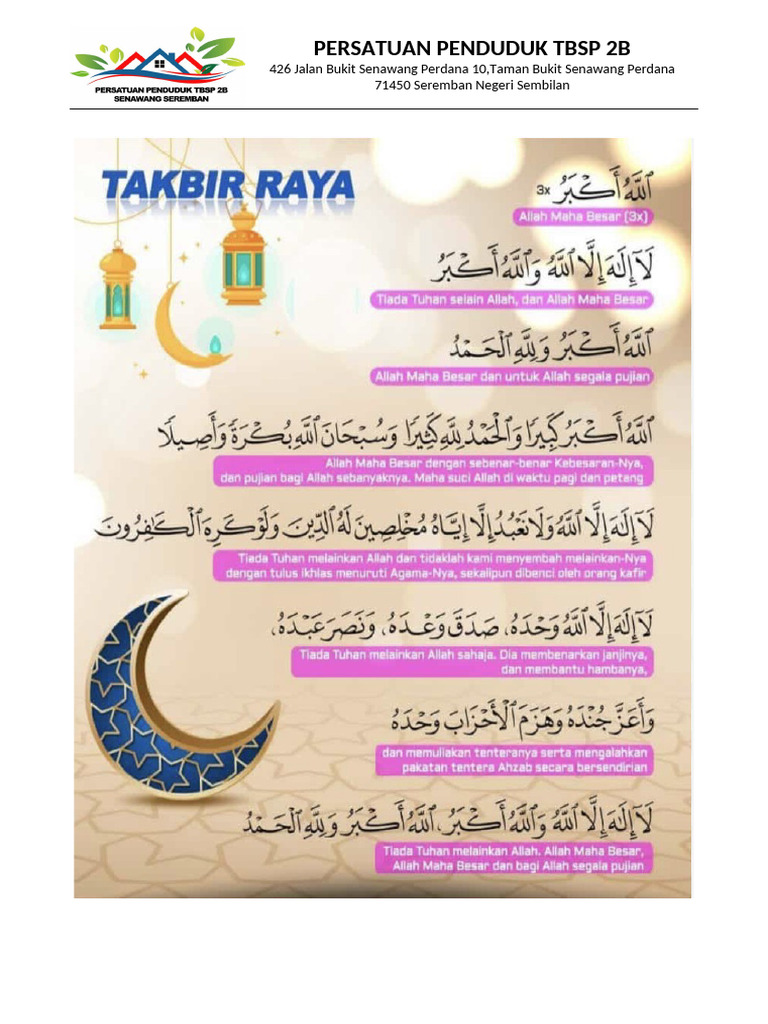 PERSATUAN PENDUDUK TBSP 2B
SENAWANG SEREMBAN
PERSATUAN PENDUDUK TBSP 2B
426 Jalan Bukit Senawang Perdana 10,Taman Bukit Senawang Perdana
71450 Seremban Negeri Sembilan
TAKBIR RAYA
اللَّهُ أَكْبَرُ 3x
Allah Maha Besar (3x)
لَآ إِلٰهَ إِلَّا اللَّهُ وَاللَّهُ أَكْبَرُ
Tiada Tuhan selain Allah, dan Allah Maha Besar
اللَّهُ أَكْبَرُ وَلِلَّهِ الْحَمْدُ
Allah Maha Besar dan untuk Allah segala pujian
اللَّهُ أَكْبَرُ كَبِيرًا وَالْحَمْدُ لِلَّهِ كَثِيرًا وَسُبْحَانَ اللَّهِ بُكْرَةً وَأَصِيلًا
Allah Maha Besar dengan sebenar-benar Kebesaran-Nya,
dan pujian bagi Allah sebanyaknya. Maha suci Allah di waktu pagi dan petang
لَآ إِلٰهَ إِلَّا اللَّهُ وَلَا نَعْبُدُ إِلَّا إِيَّاهُ مُخْلِصِينَ لَهُ الدِّينَ وَلَوْ كَرِهَ الْكَافِرُونَ
Tiada Tuhan melainkan Allah dan tidaklah kami menyembah melainkan-Nya
dengan tulus ikhlas menuruti Agama-Nya, sekalipun dibenci oleh orang kafir
لَآ إِلٰهَ إِلَّا اللَّهُ وَحْدَهُ، صَدَقَ وَعْدَهُ، وَنَصَرَ عَبْدَهُ،
Tiada Tuhan melainkan Allah sahaja. Dia membenarkan janjinya,
dan membantu hambanya,
وَأَعَزَّ جُنْدَهُ وَهَزَمَ الْأَحْزَابَ وَحْدَهُ
dan memuliakan tenteranya serta mengalahkan
pakatan tentera Ahzab secara bersendirian
لَآ إِلٰهَ إِلَّا اللَّهُ وَاللَّهُ أَكْبَرُ، اللَّهُ أَكْبَرُ وَلِلَّهِ الْحَمْدُ
Tiada Tuhan melainkan Allah. Allah Maha Besar,
Allah Maha Besar dan bagi Allah segala pujian